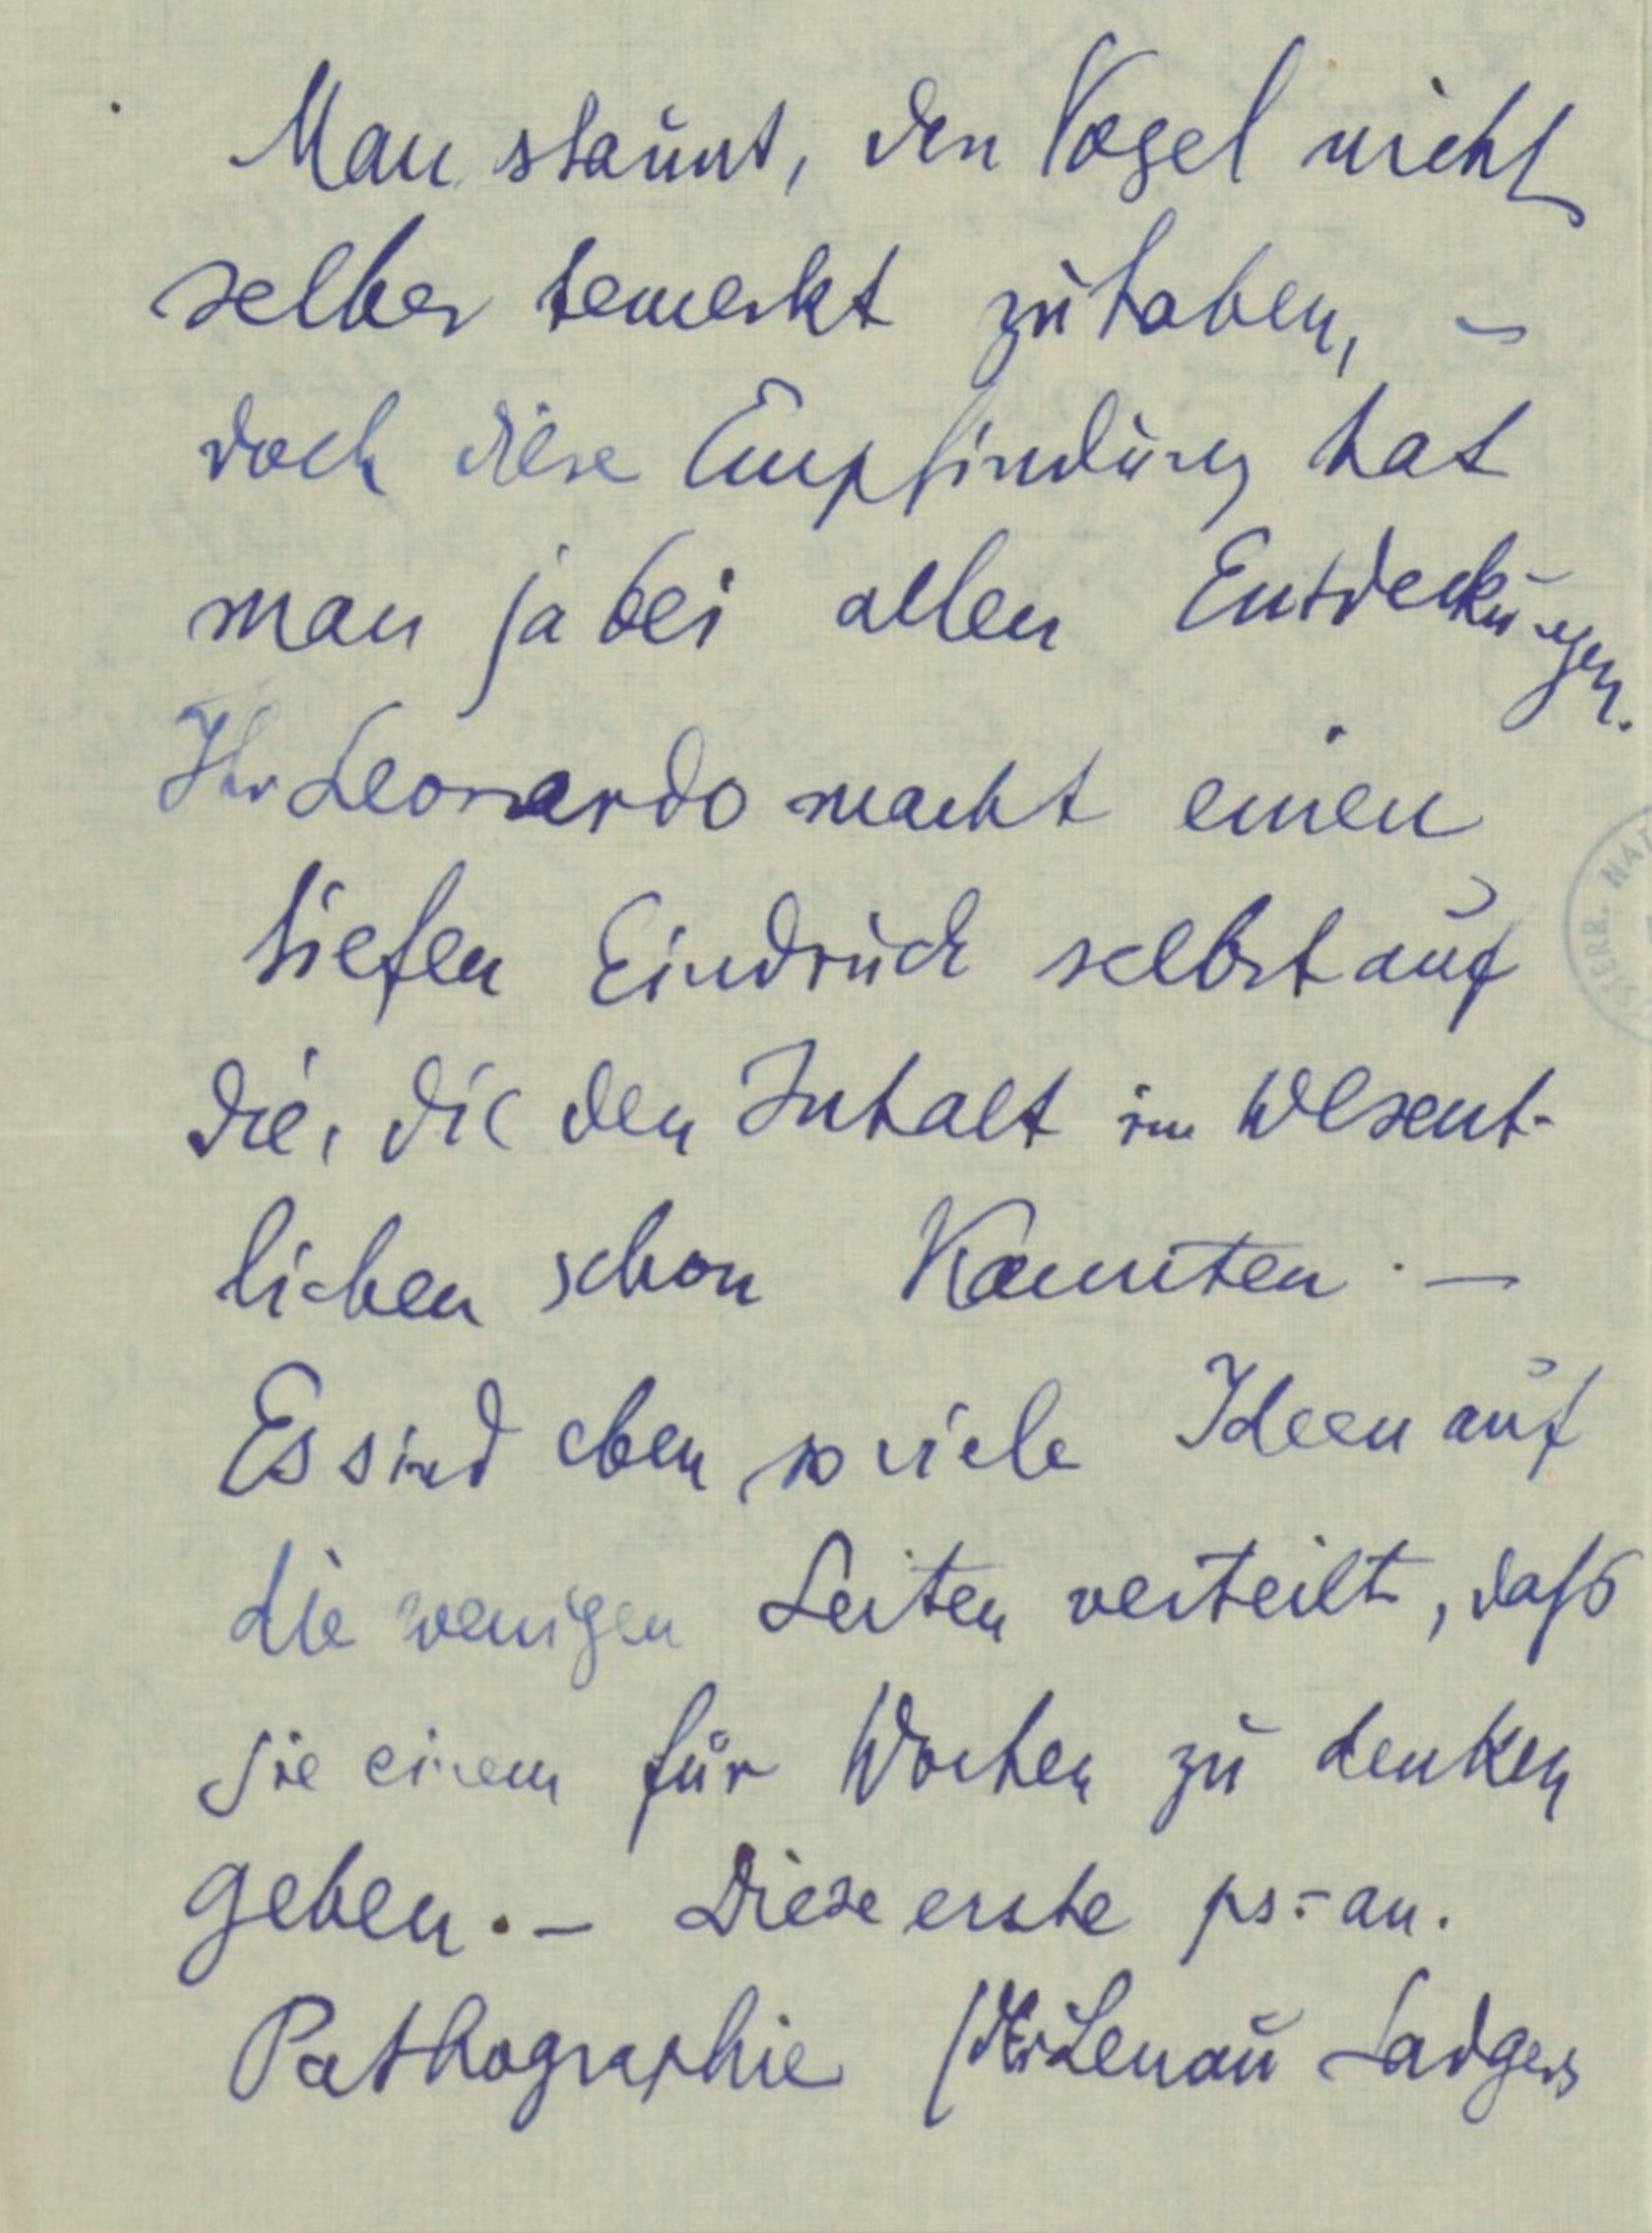 Man staunt, den Vogel nicht
selber bemerkt zu haben, –
doch diese Empfindung hat
man ja bei allen Entdeckungen.
Ihr Leonardo macht einen
tiefen Eindruck selbst auf
die, die den Inhalt im Wesent-
lichen schon kannten. –
Es sind eben so viele Ideen auf
die wenigen Seiten verteilt, daß
sie einem für Wochen zu denken
geben. – Diese erste ps-an.
Pathographie (der Lenau Sadgers
STERR. NA